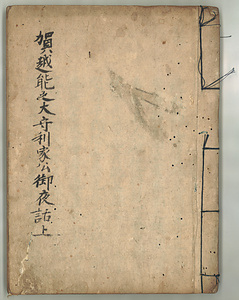 賀越能之大守利家公御夜話上